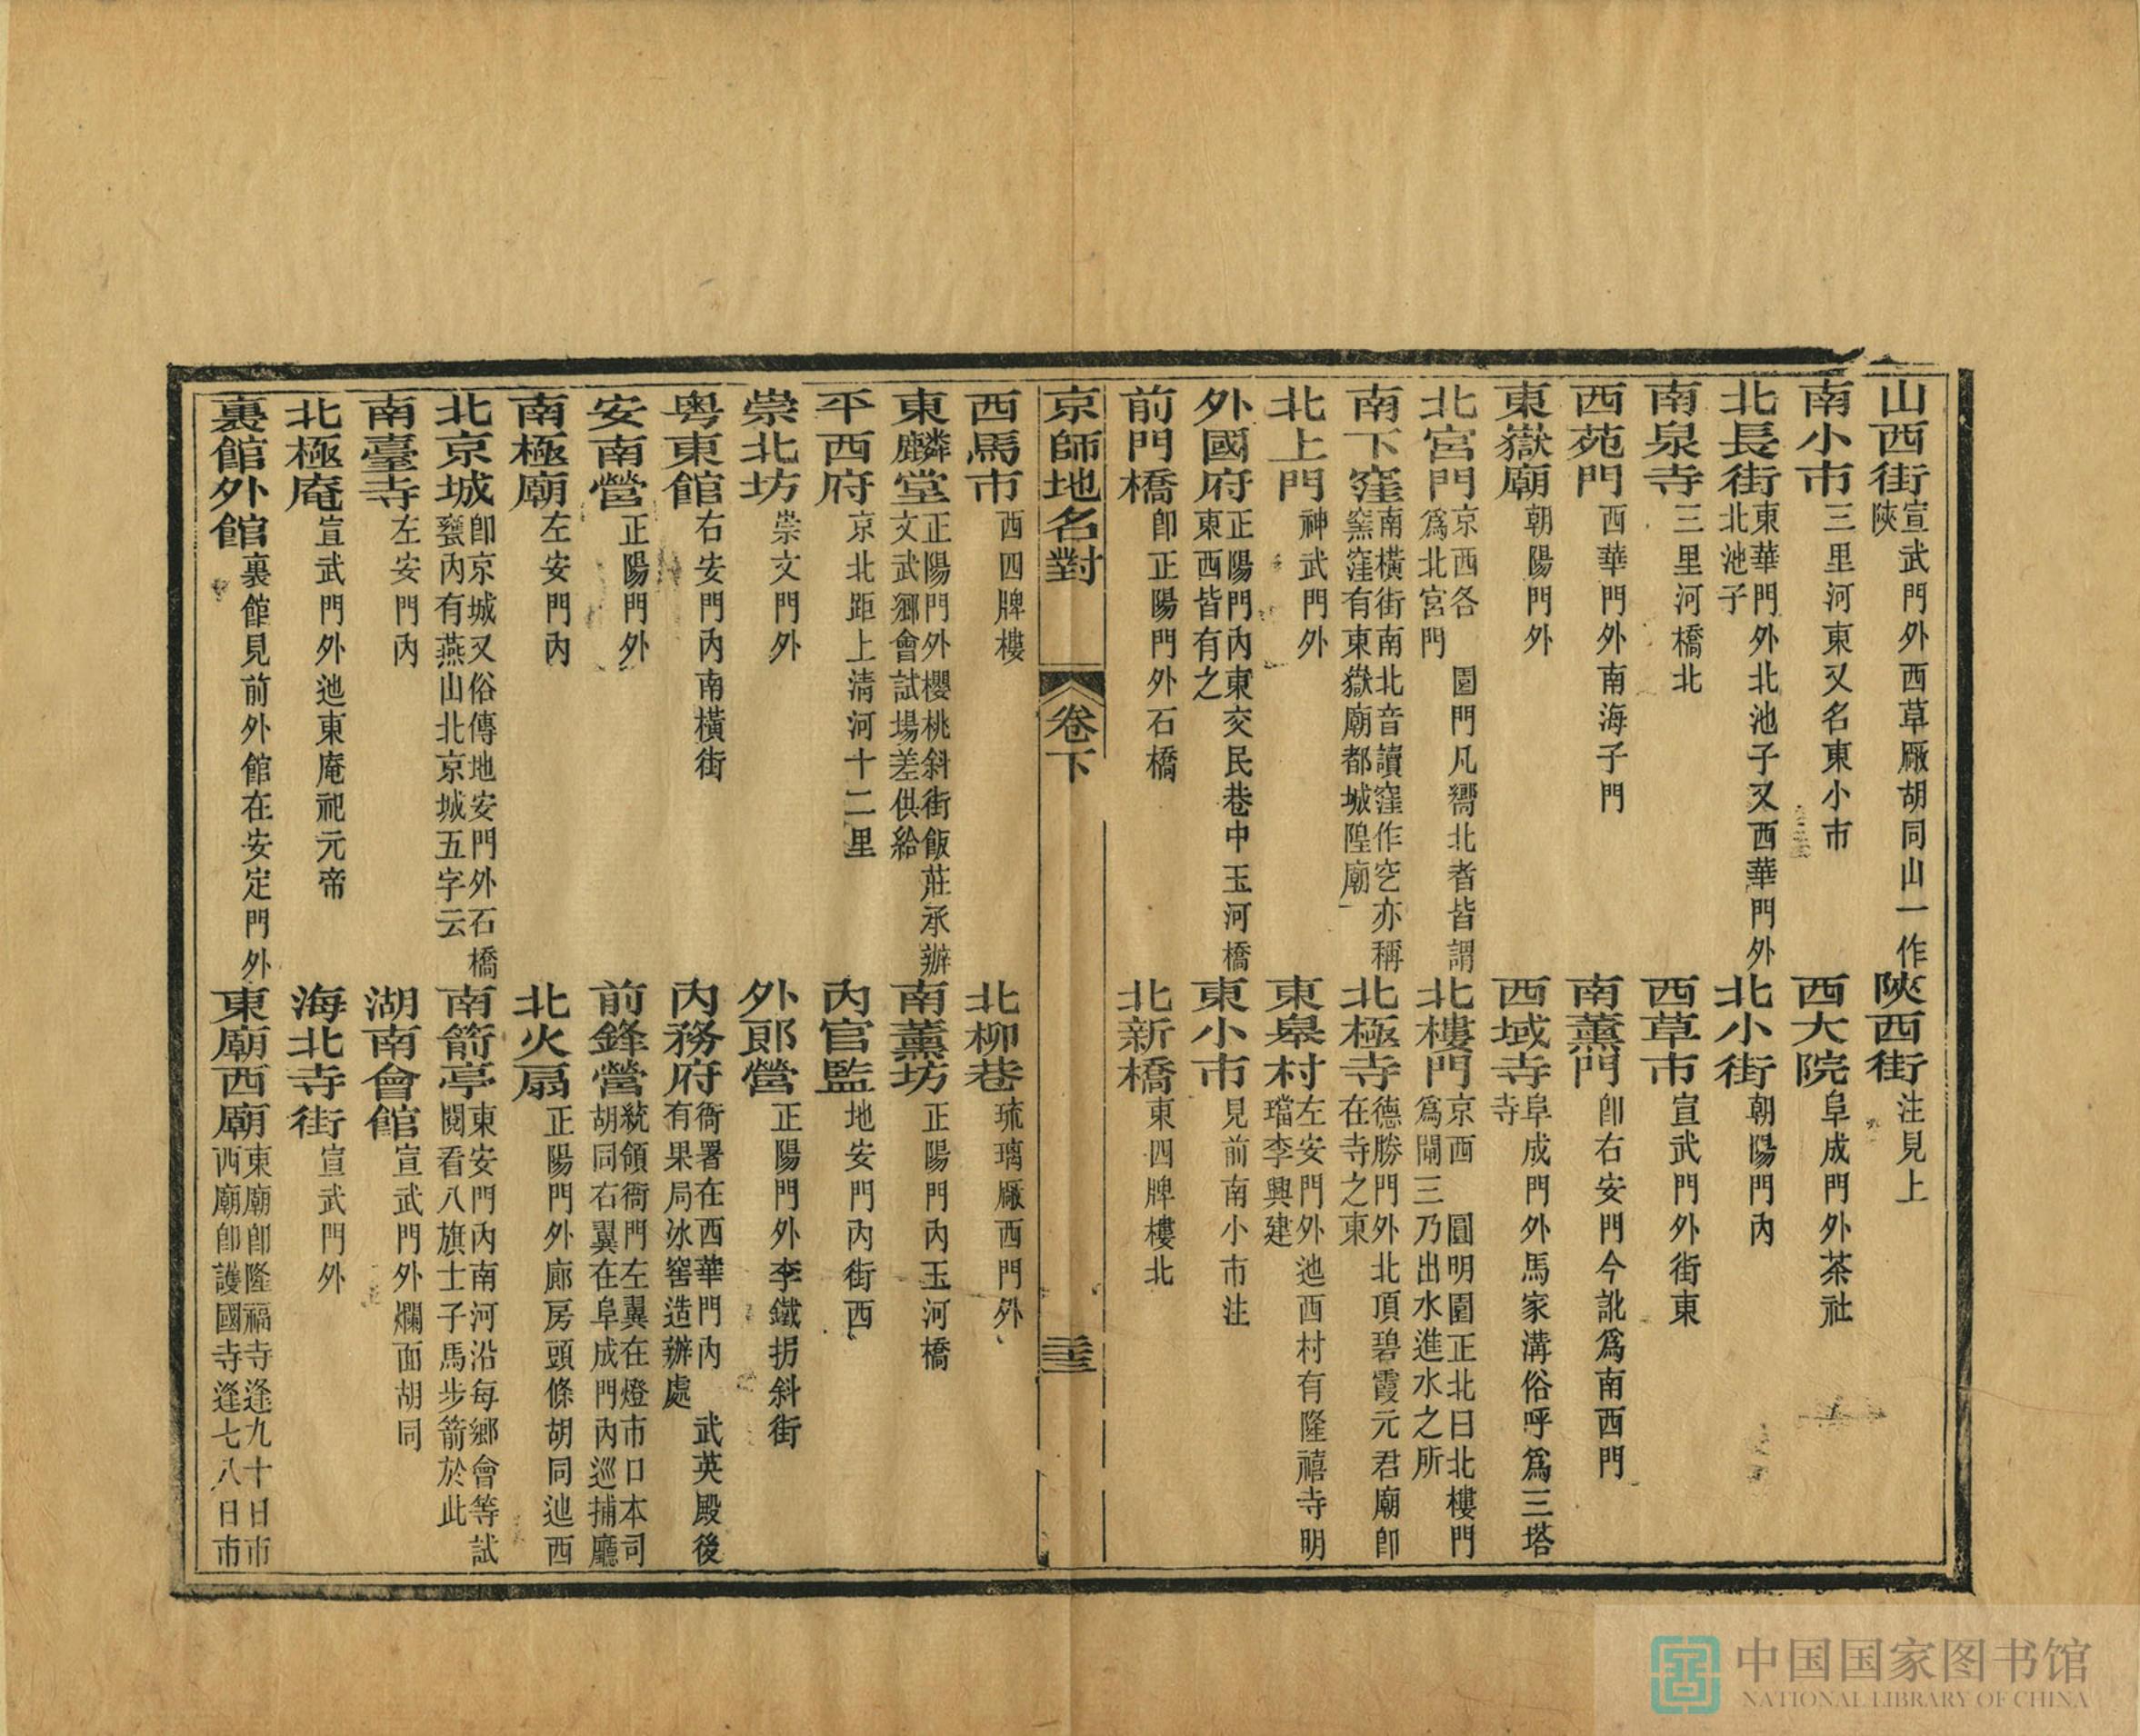 山西街宣武門外西草厰胡同山一作陝　陝西街注見上
南小市三里河東又名東小市　西大院阜成門外茶社
北長街東華門外北池子又西華門外北池子　北小街朝陽門內
南泉寺三里河橋北　西草市宣武門外街東
西苑門西華門外南海子門　南薰門卽右安門今訛爲南西門
東嶽廟朝陽門外　西域寺阜成門外馬家溝俗呼爲三塔寺
北宮門京西各　園門凡嚮北者皆謂爲北宮門　北樓門京西　圓明園正北曰北樓門爲閘三乃出水進水之所
南下窪南橫街南北音讀窪作空亦稱窯窪有東嶽廟都城隍廟　北極寺德勝門外北頂碧霞元君廟卽在寺之東
北上門神武門外　東皋村左安門外迤西村有隆禧寺明璫李興建
外國府正陽門內東交民巷中玉河橋東西皆有之　東小市見前南小市注
前門橋卽正陽門外石橋　北新橋東四牌樓北
京師地名對　卷下　三十三
西馬市西四牌樓　北柳巷琉璃厰西門外
東麟堂正陽門外櫻桃斜街飯莊承辦文武鄉會試場差供給　南薰坊正陽門內玉河橋
平西府京北距上清河十二里　內官監地安門內街西
崇北坊崇文門外　外郎營正陽門外李鐵拐斜街
粵東館右安門內南橫街　內務府衙署在西華門內　武英殿後有果局冰窖造辦處
安南營正陽門外　前鋒營統領衙門左翼在燈市口本司胡同右翼在阜成門內巡捕廳
南極廟左安門內　北火扇正陽門外廊房頭條胡同迤西
北京城卽京城又俗傳地安門外石橋甃內有燕山北京城五字云　南箭亭東安門內南河沿每鄉會等試閱看八旗士子馬步箭於此
南臺寺左安門內　湖南會館宣武門外爛面胡同
北極庵宣武門外迤東庵祀元帝　海北寺街宣武門外
裏館外館裏館見前外館在安定門外　東廟西廟東廟卽隆福寺逢九十日市西廟卽護國寺逢七八日市
中国国家图书馆
NATIONAL LIBRARY OF CHINA